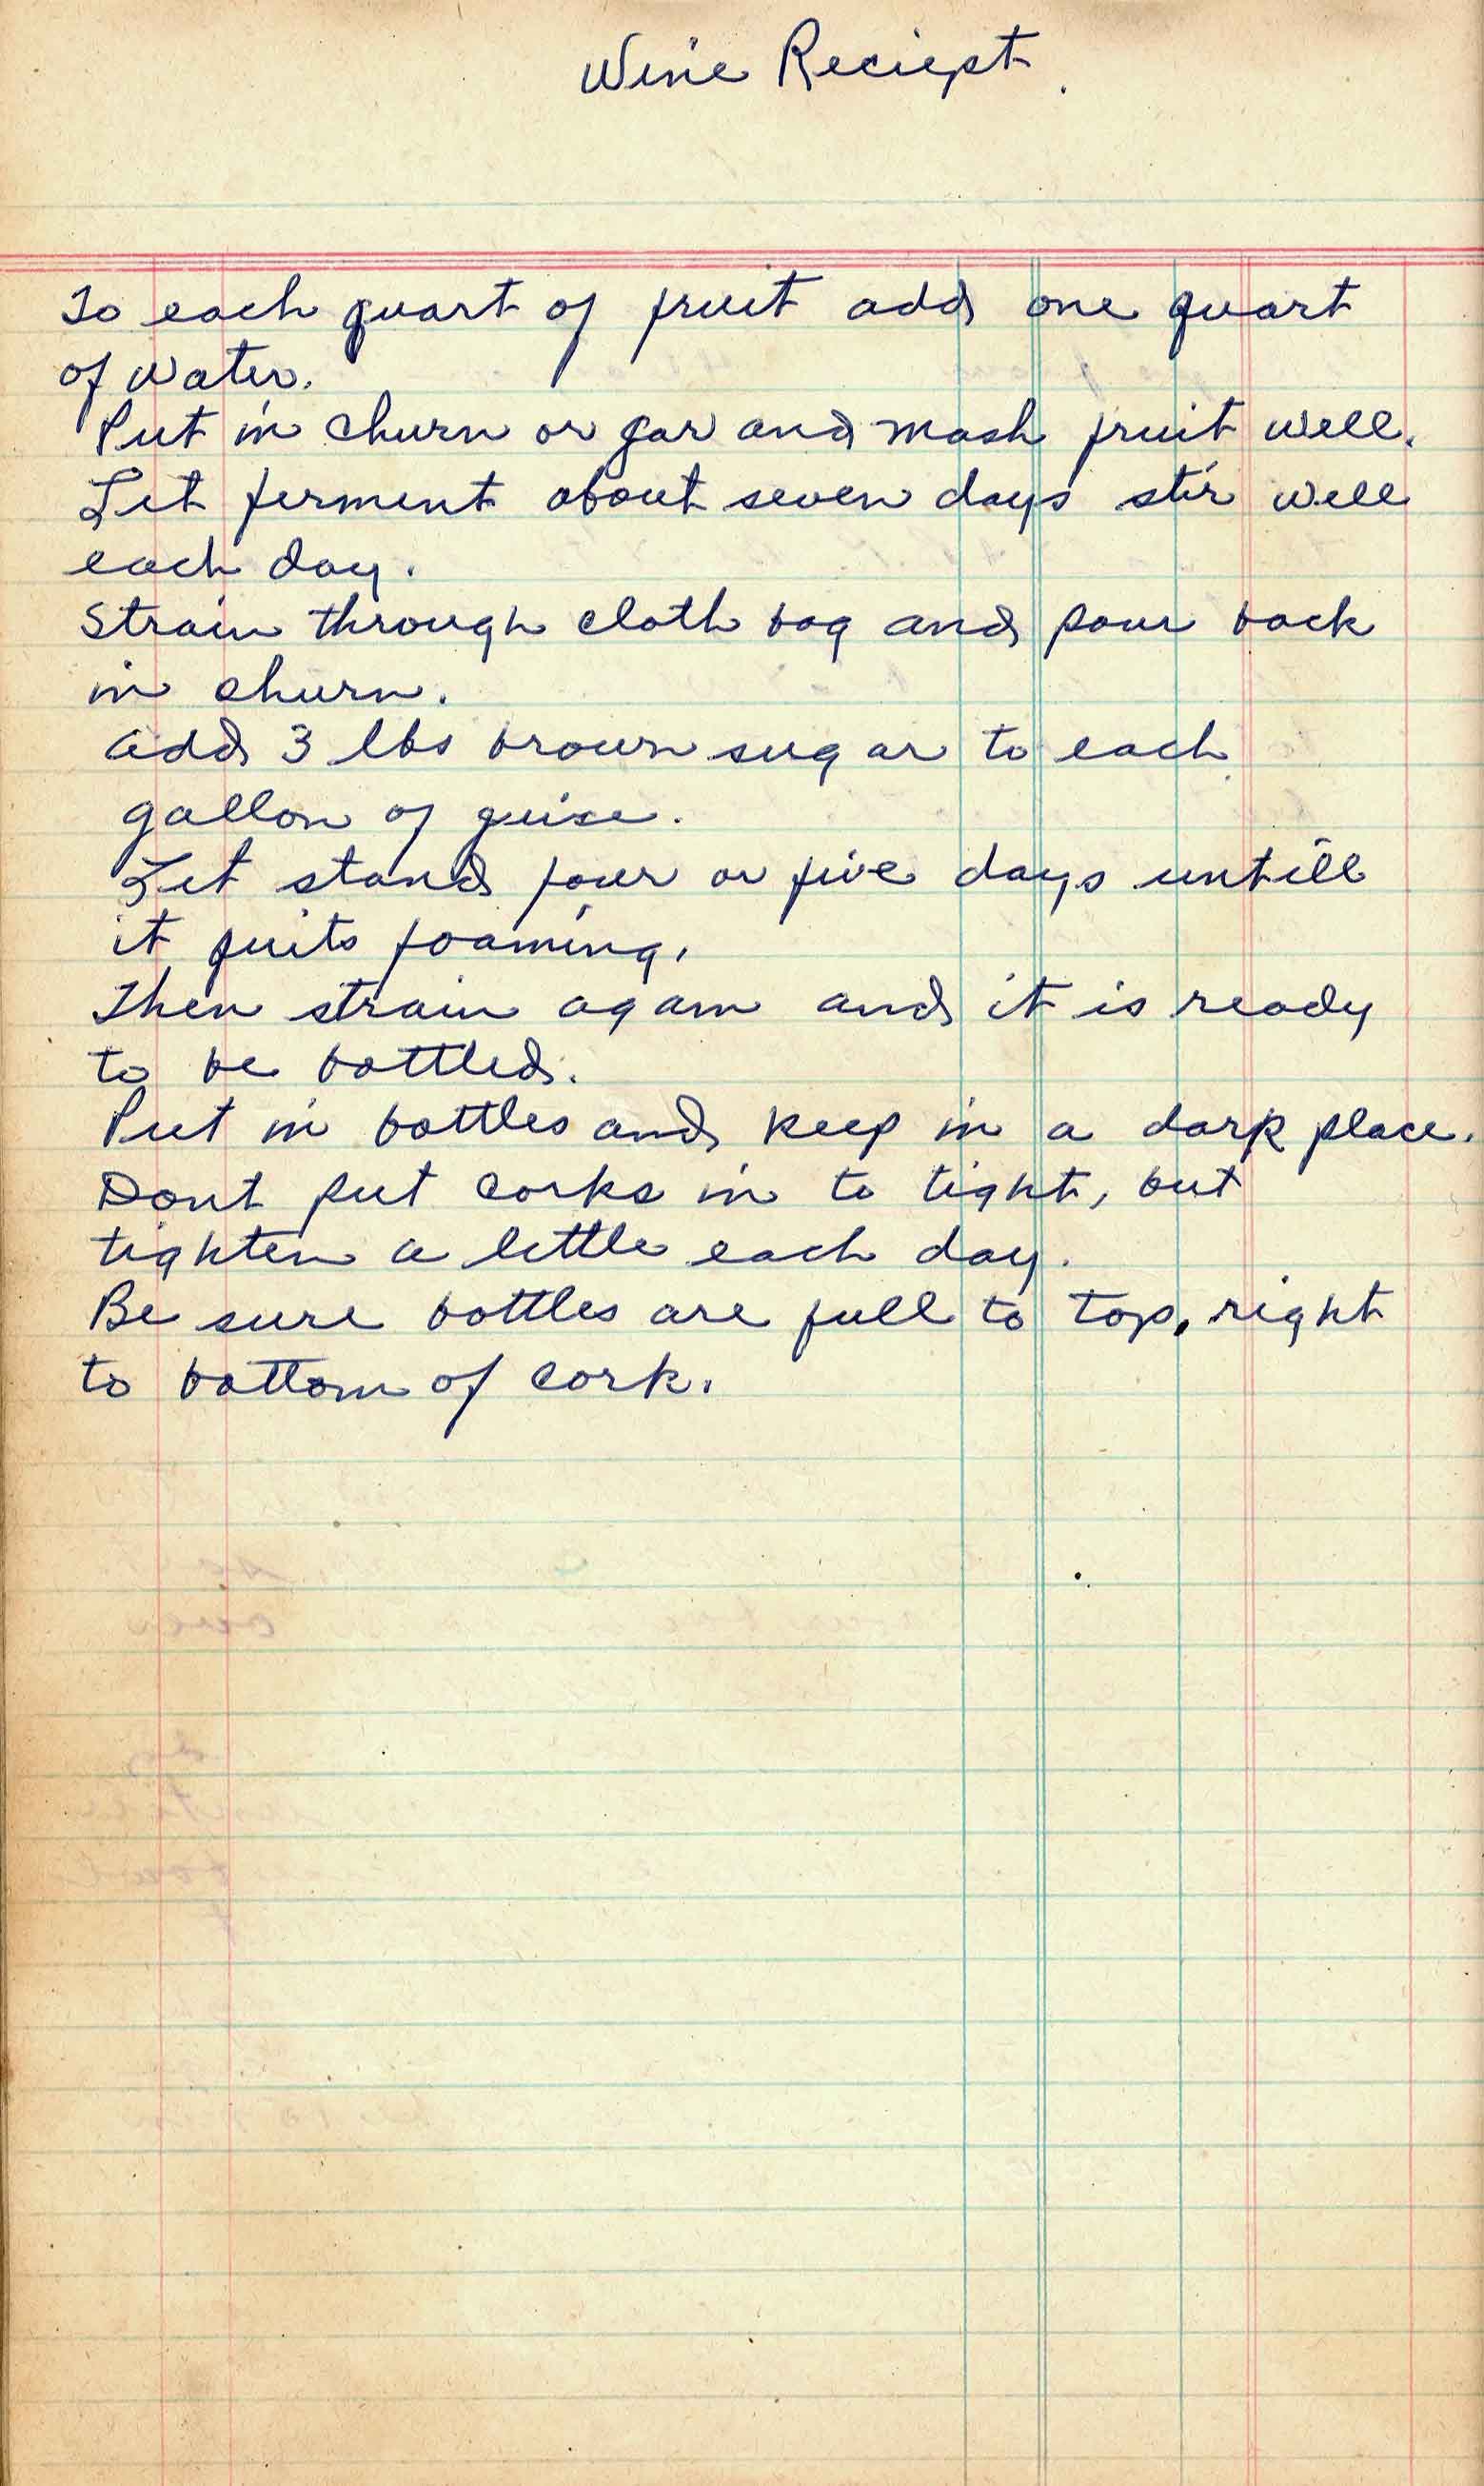 Wine Reciept.
To each quart of fruit add one quart
of water.
Put in churn or jar and mash fruit well.
Let ferment about seven days stir well
each day.
Strain through cloth bag and pour back
in churn.
add 3 lbs brown sugar to each
gallon of juise.
Let stand four or five days untill
it quits foaming.
Then strain again and it is ready
to be bottled.
Put in bottles and keep in a dark place.
Dont put corks in to tight, but
tighten a little each day.
Be sure bottles are full to top, right
to bottom of cork.